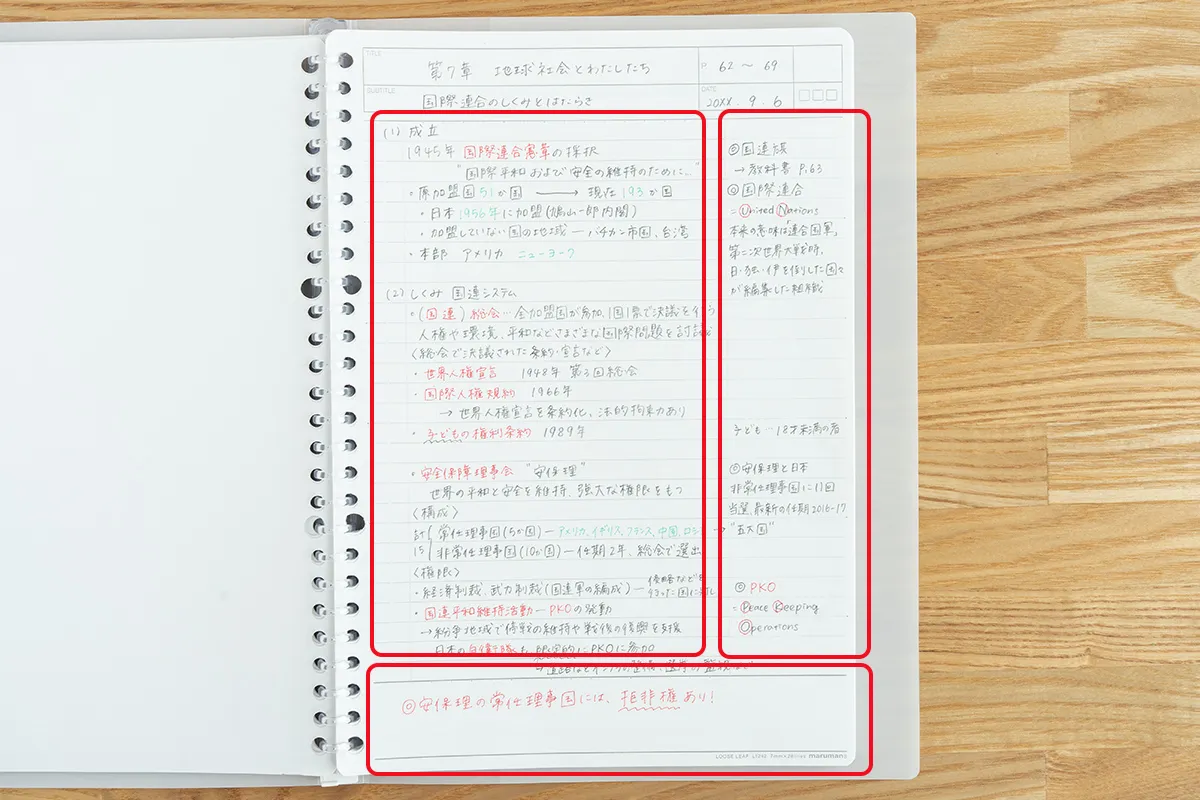 TITLE
第7章 地球社会とわたしたち
P. 62 ～ 69
SUBTITLE
国際連合のしくみとはたらき
DATE
20XX . 9 . 6
(1) 成立
1945年 国際連合憲章の採択
"国際平和および安全の維持のために…"
・原加盟国51か国 → 現在193か国
・日本1956年に加盟(鳩山一郎内閣)
・加盟していない国の地域 ― バチカン市国、台湾
・本部 アメリカ ニューヨーク
(2) しくみ 国連システム
・(国連)総会… 全加盟国が参加、1国1票で決議を行う
人権や環境、平和などさまざまな国際問題を討議
〈総会で決議された条約・宣言など〉
・世界人権宣言 1948年 第3回総会
・国際人権規約 1966年
→ 世界人権宣言を条約化、法的拘束力あり
・子どもの権利条約 1989年
・安全保障理事会 "安保理"
世界の平和と安全を維持、強大な権限をもつ
〈構成〉
計 常任理事国(5か国) ― アメリカ、イギリス、フランス、中国、ロシ →
15 非常任理事国(10か国) ― 任期2年、総会で選出
〈権限〉
・経済制裁、武力制裁(国連軍の編成) ― 侵略などを
行った国に対し
・国連平和維持活動 ― PKOの発動
→紛争地域で停戦の維持や戦後の復興を支援
日本の自衛隊も、限定的にPKOに参加
◎国連旗
→ 教科書 P.63
◎国際連合
= United Nations
本来の意味は「連合国軍」
第二次世界大戦時、
日・独・伊を倒した国々
が編集した組織
子ども…18才未満の者
◎安保理と日本
非常任理事国に11回
当選、最新の任期2016-17
"五大国"
◎ PKO
= Peace Keeping
Operations
◎安保理の常任理事国には、拒非権あり!
LOOSE LEAF maruman